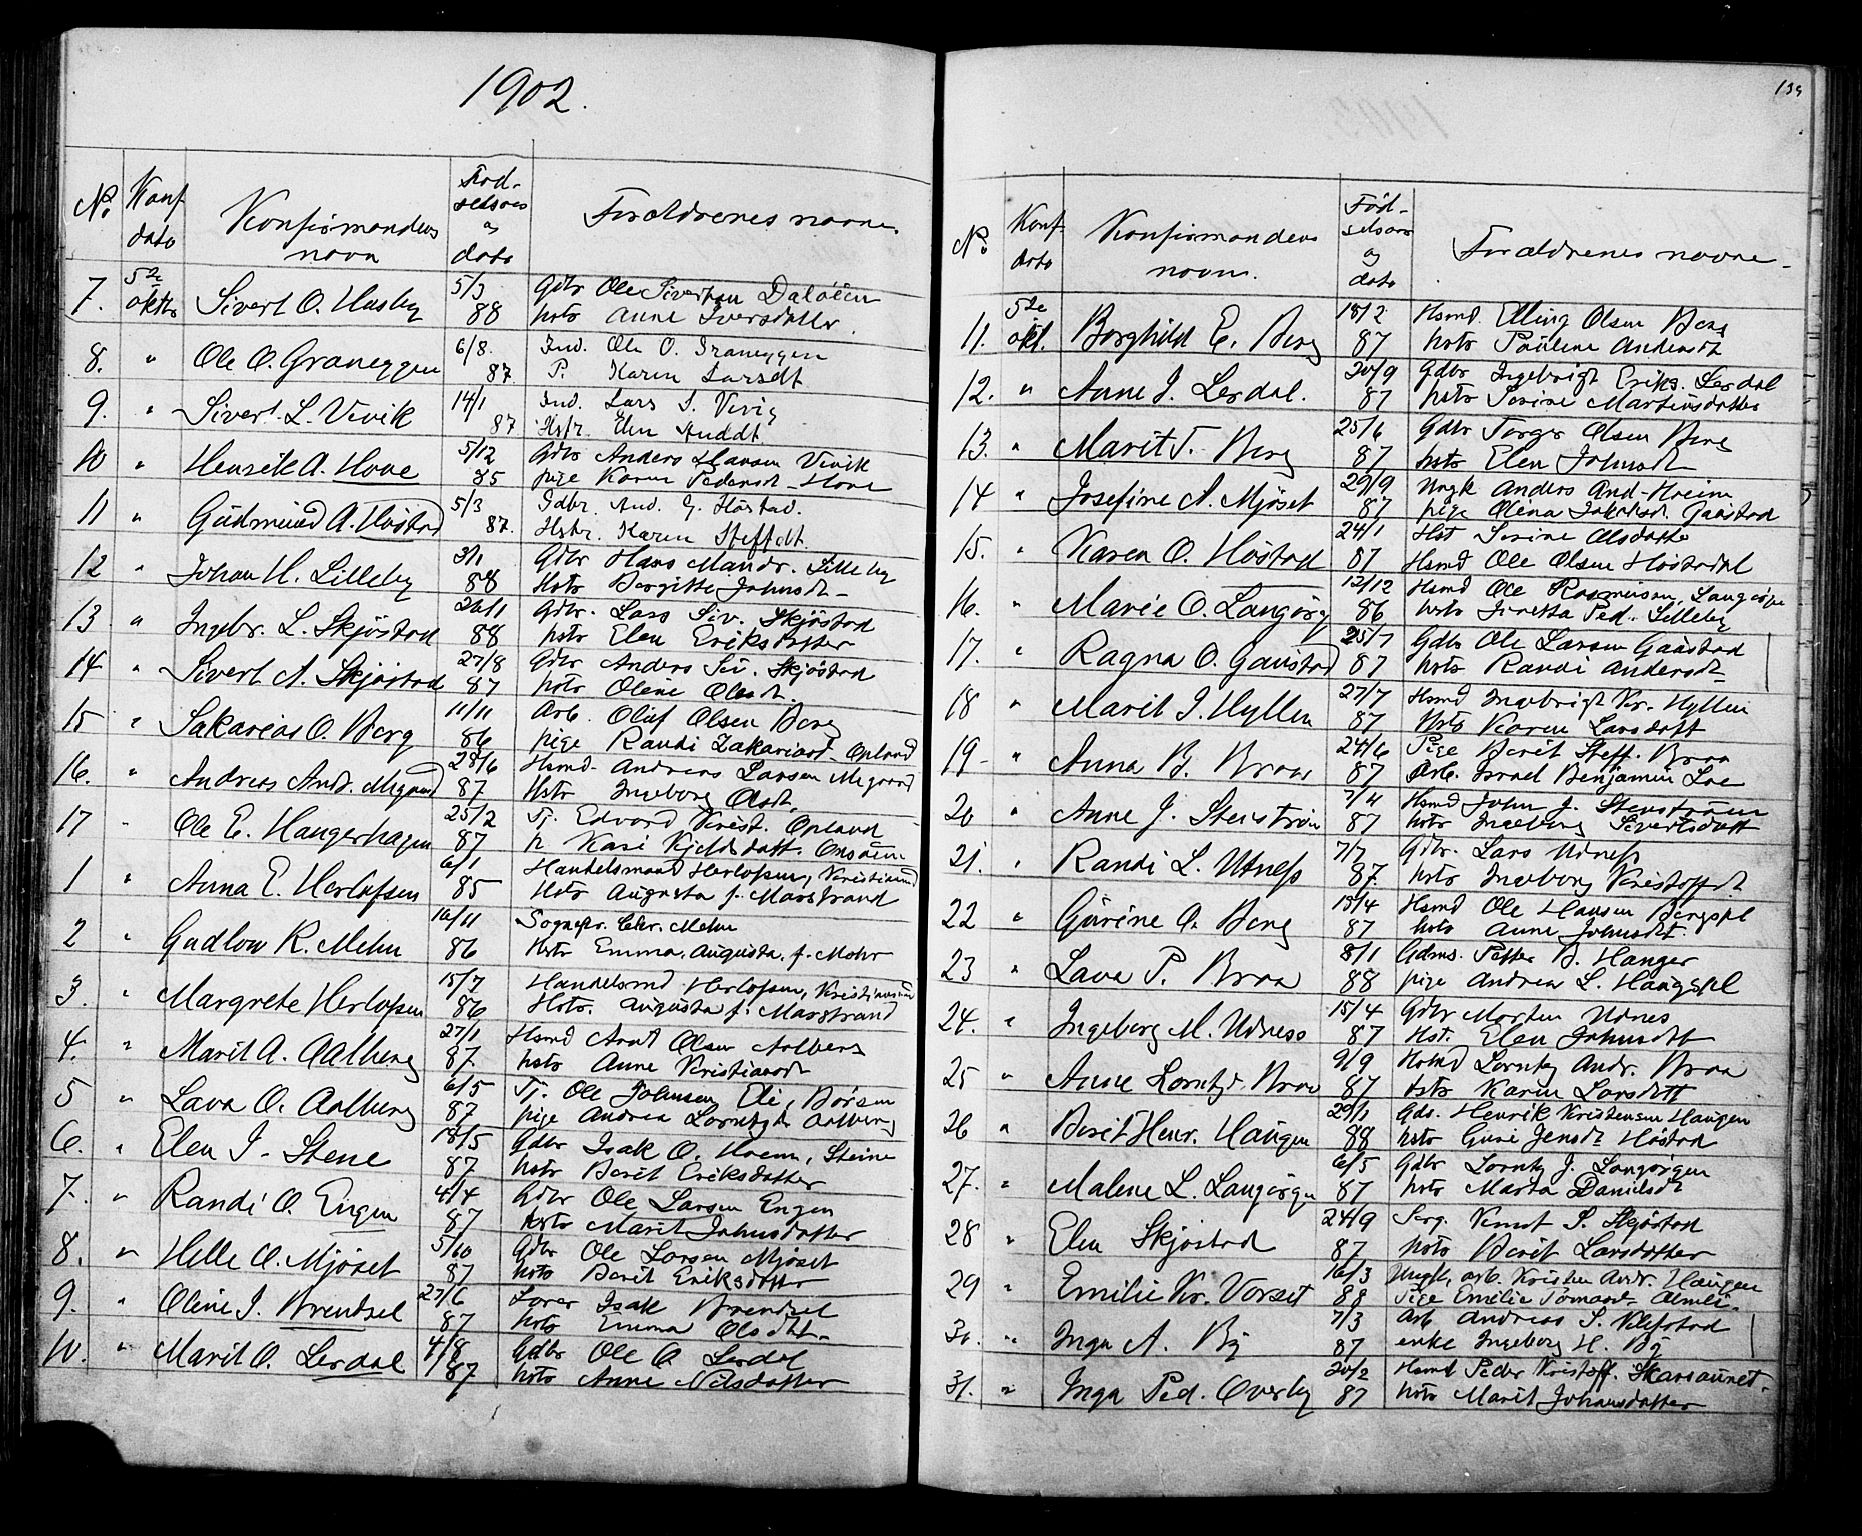 1902.
No. Konf dato Konfirmandens navn Fødselsaar og dato Forældrenes navne.
7. 5te oktbr Sivert O. Husby 5/3 88 Gdbr Ole Sivertsen Daløien
hstr Anne Iversdatter.
8. " Ole O. Graneggen 6/8. 87 Ind. Ole O. Graneggen
P. Karen Larsdt
9. " Sivert L. Vivik 14/1 87 Ind. Lars S. Vivig
Hstr. Elen
10 " Henrik A. Hove 5/12 85 Gdbr Anders Hansen Vivik
pige Karen Pedersdt - Hove
11 " Gudmund A. Høstad 5/3 87. Gdbr. And. G. Høstad.
Hstr. Karen Steffdt.
12 " Johan H. Lilleby 3/1 88 Gdbr Hans Mandr. Lilleby
Hstr Bergitte Johnsdt -
13 " Ingebr. L. Skjøstad 26/11 88 Gdbr. Lars Siv. Skjøstad
hstr Elen Eriksdatter
14 " Sivert A. Skjøstad 27/8 87 Gdbr Anders Siv. Skjøstad
hstr Oline Olsdt
15 " Sakarias O. Berg 11/11 86 Arb. Oluf Olsen Berg
pige Randi Zakariasd. Opland
16. " Andreas Andr. Megaard 28/6 87 Hsmd. Andreas Larsen Megaard
Hstr Ingeborg Olsdt.
17 " Ole E. Haugerhagen 25/2 87 Tj. Edvard Krist. Opland
h Kari Kjeldsdatt. Onsøien
1 " Anna E. Herlofsen 6/1 85 Handelsmand Herlofsen, Kristiansund
Hstr Augusta f. Marstrand
2 " Gudlow K. Mehn 16/11 86 Sognepr. Chr. Mehn
Hstr Emma Augusta f. Mohr
3. " Margrete Herlofsen 15/7 86 Handelsmd Herlofsen, Kristiansund
Hstr. Augusta f. Marstrand
4. " Marit A. Aalberg 27/1 87. Hsmd Arnt Olsen Aalberg
hstr Anne Kristiansdt
5 " Lava O. Aalberg 6/5 87 Tj. Ole Johnsen Eli, Børsen
pige Andrea Lorntsdt Aalberg
6. " Elen I. Stene 18/5 87 Gdbr Isak O. Moem, Steine
hstr Berit Eriksdatter
7. " Randi O. Engen 4/4 87 Gdbr Ole Larsen Engen
hstr Marit Johnsdatter
8. " Helle O. Mjøset 5/10 87 Gdbr Ole Larsen Mjøset
hstr Berit Eriksdatter
9. " Oline I. Brendsel 27/6 87 Lærer Isak Brendsel
hstr Emma Olsdt.
10. " Marit O. Lerdal 4/8 87 Gdbr Ole O. Lerdal
hstr Anne Nilsdatter
139
No. Konf dato Konfirmandens navn. Fødselsaar og dato Forældrenes navne.
11. 5te okt. Borghild E. Berg 18/2 87 Hsmd. Elling Olsen Berg
hstr Pauline Andersdt
12. " Anne I. Lerdal. 20/9 87 Gdbr Ingebrigt Eriks. Lerdal
hstr Serine Martinusdatter
13. " Marit T. Berg 25/6 87 Gdbr Torger Olsen Berg
hstr Elen Johnsdt
14 " Josefine A. Mjøset 29/9 87 Ungk Anders And. Hoeim
pige Olena Jakobsd. Gaustad
15. " Karen O. Høstad 24/1 87 Hst Serine Olsdatter
Hsmd Ole Olsen Høstadal
16. " Marie O. Langørg 12/12 86 Hsmd Ole Rasmussen, Langørgen
hstr Ped. Lilleby
17. " Ragna O. Gaustad 25/7 87 Gdbr Ole Larsen Gaustad
hstr Randi Andersdt
18 " Marit I. Hyllen 27/7 87 Hsmd Ingebrigt Kr. Hyllen
Hstr Karen Larsdatt
19 - " Anna B. Braa 24/6 87 Pige Berit Steff. Braa
Arb. Israel Benjamin Loe
20 " Anne J. Stenstrøm 7/4 87 Hsmd John J. Stenstrøen
hstr Ingeborg Sivertsdatt
21. " Randi L. Utness 7/7 87. Gdbr. Lars Udness
hstr Ingeborg Kristoffdt
22 " Gurine O. Berg 15/4 87 Hsmd Ole Hansen Bergspl
hstr Anne Johnsdt.
23 " Lava P. Braa 8/1 88 Gdms. Petter B. Hanger
pige Andrea L. Haugspl
24. " Ingeborg M. Udness 15/4 87 Gdbr Morten Udnes
Hst. Elen Johnsdt
25 " Anne Lorntsd. Braa 9/9 87 Hsmd Lornts Andr. Braa
hstr Karen Larsdatt
26 " Berit Henr. Haugen 29/1 88 Gdb. Henrik Kristensen Haugen
hstr Guri Jensdt Høstad
27. " Malene L. Langørgen 6/5 87 Gdbr Lornts J. Langørgen
hstr Marta Danielsdt
28 " Elen Skjøstad 24/9 87 Serg. Knut S. Skjøstad
hstr Berit Larsdatter
29 " Emilie Kr. Vorset 16/3 88 Ungk, arb. Kristen Andr. Haugen
Pige Emilie Almli.
30. " Inga A. By 7/3 87 Arb Andreas S. Klefstad
enke Ingeborg H. By
31. " Inga Ped. Overby 20/2 87 Hsmd Peder Kristoff. Skaraunet.
hstr Marit Johansdatter